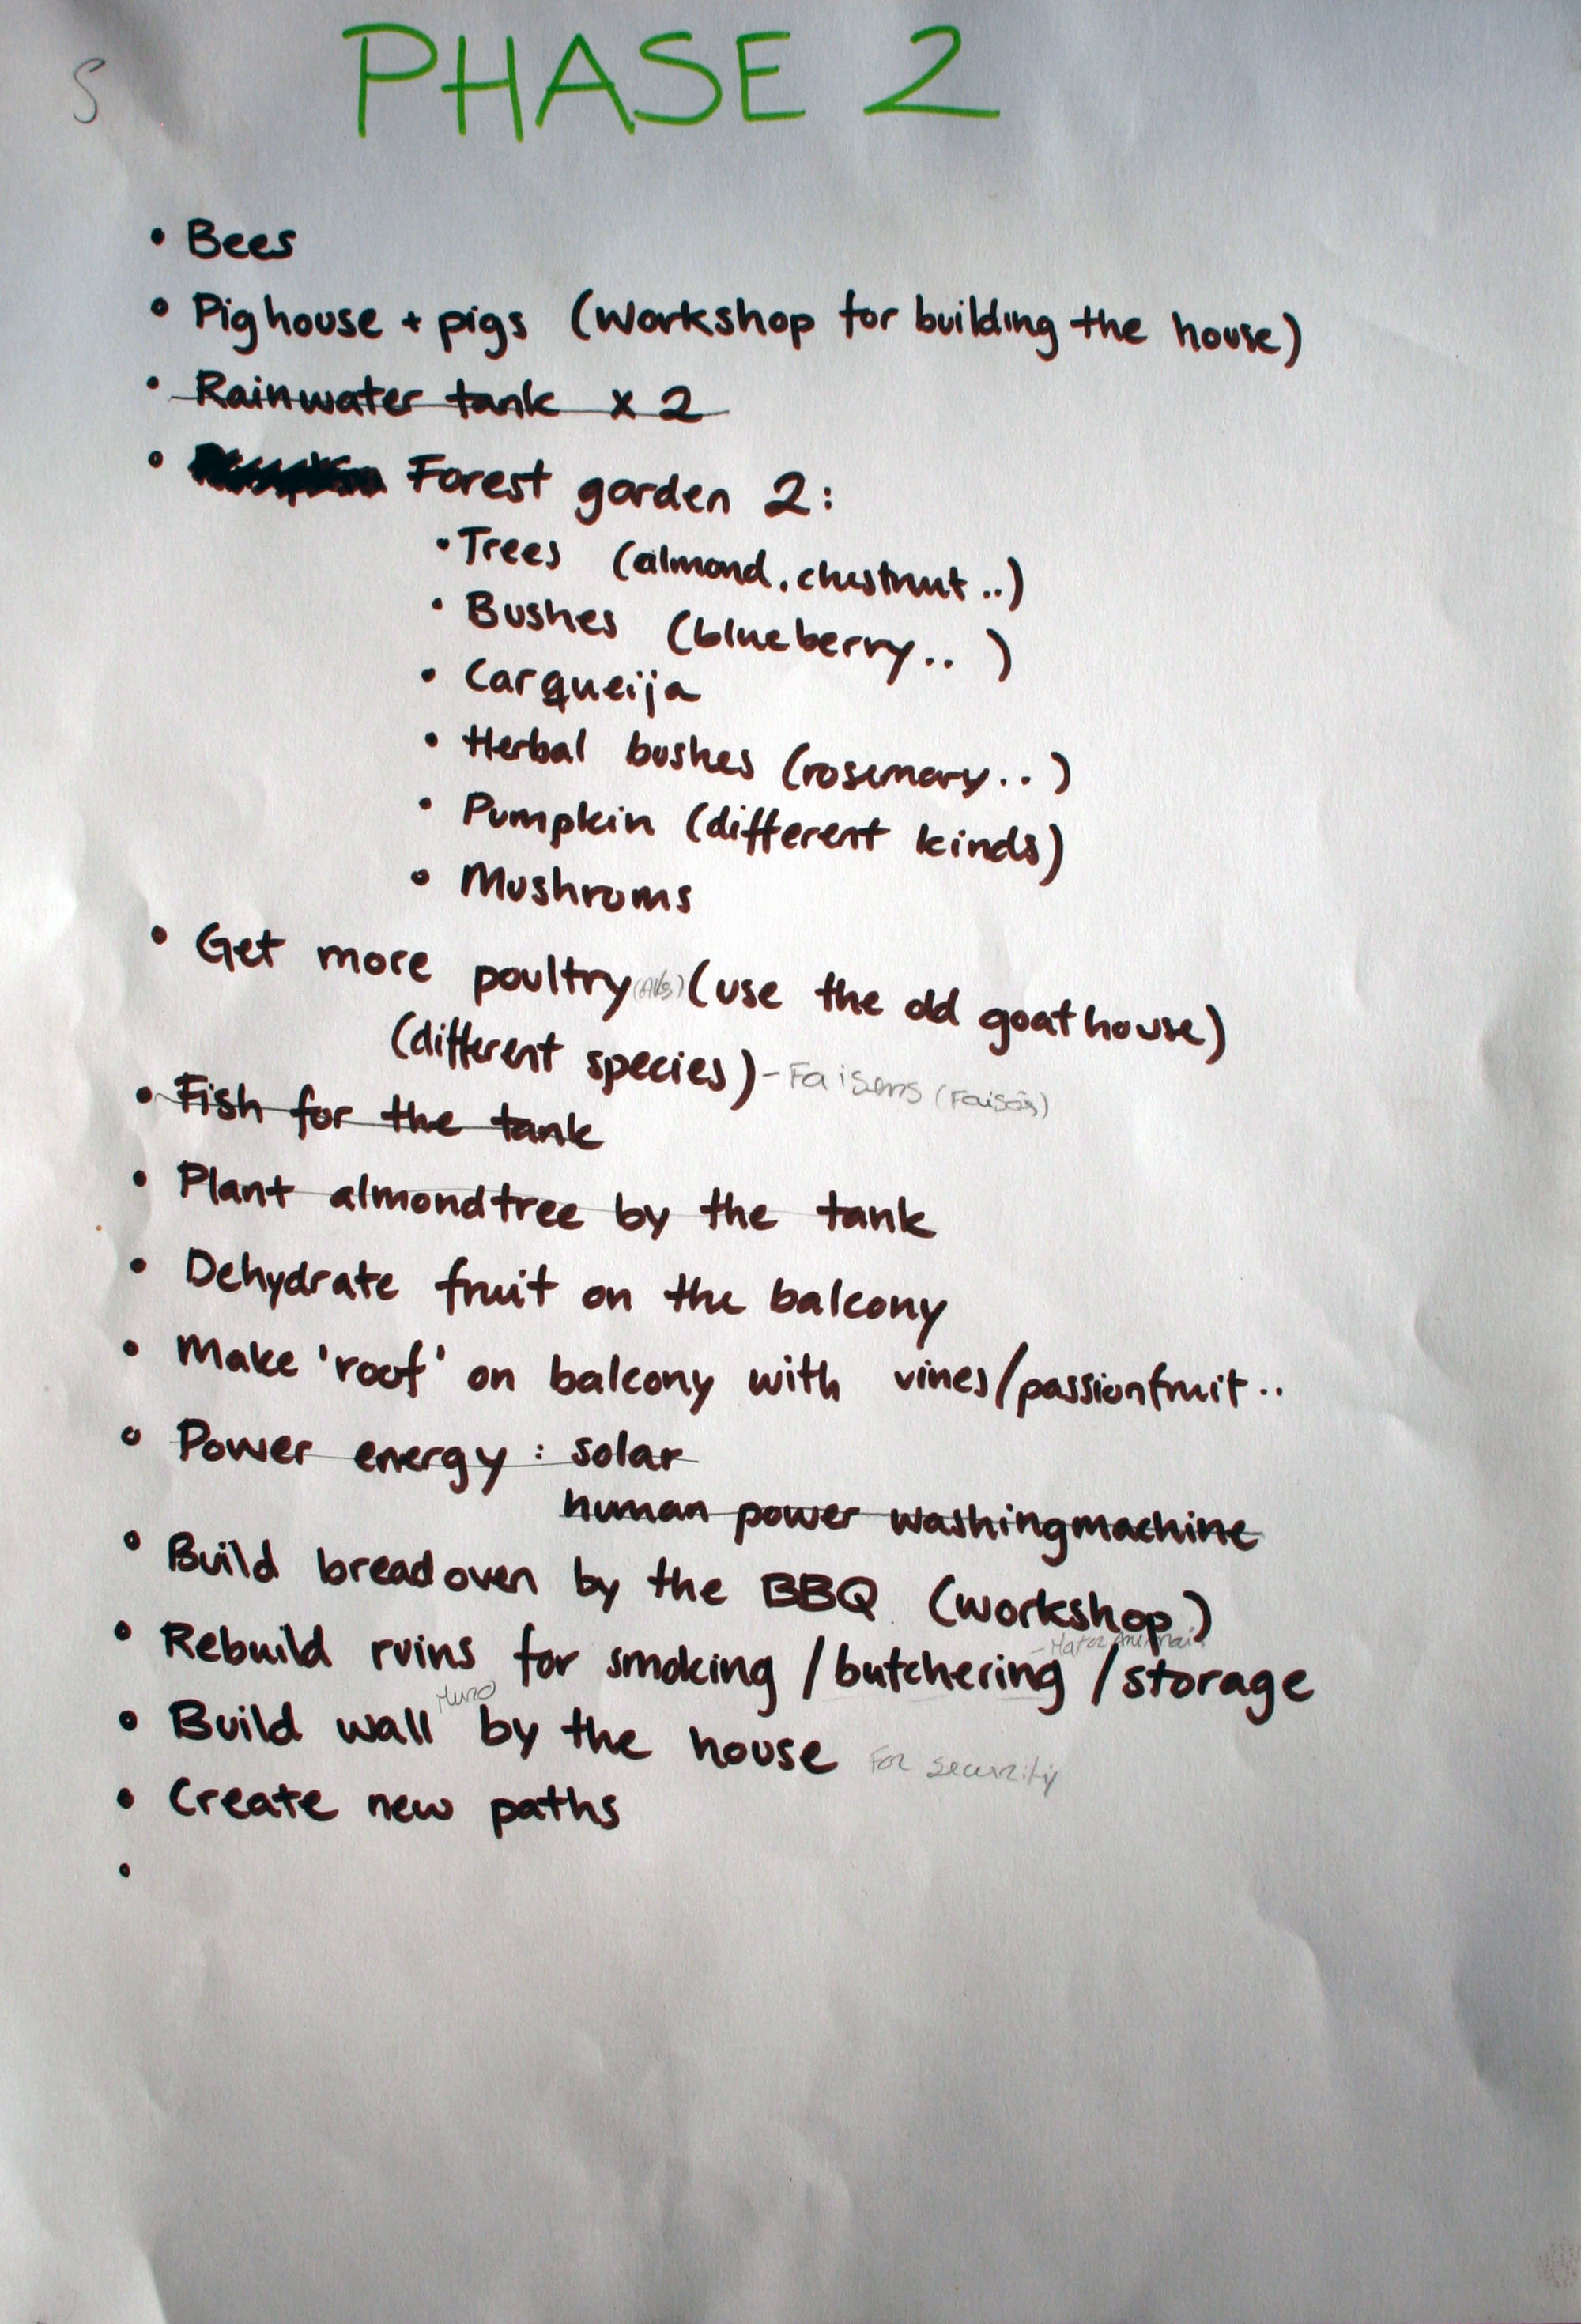 S
PHASE 2
• Bees
• Pighouse + pigs (Workshop for building the house)
• Rainwater tank x 2
• Forest garden 2:
• Trees (almond, chestnut..)
• Bushes (blueberry.. )
• Carqueija
• Herbal bushes (rosemary.. )
• Pumpkin (different kinds)
• Mushroms
• Get more poultry (use the old goathouse)
(different species) - Faisens (Faisõs)
• Fish for the tank
• Plant almondtree by the tank
• Dehydrate fruit on the balcony
• Make 'roof' on balcony with vines/passionfruit..
• Power energy : solar
human power washingmachine
• Build breadoven by the BBQ (workshop)
- Matar Animais
• Rebuild ruins for smoking /butchering /storage
Muro
• Build wall by the house For security
• Create new paths
•